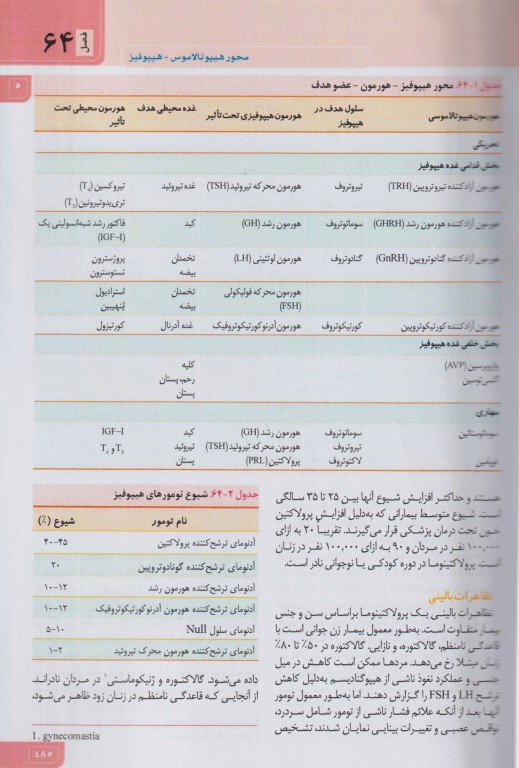 فصل ۶۴
محور هیپوتالاموس - هیپوفیز
۵
جدول ۱-۶۴. محور هیپوفیز - هورمون - عضو هدف
هورمون هیپوتالاموسی سلول هدف در هیپوفیز هورمون هیپوفیزی تحت تأثیر غده محیطی هدف هورمون محیطی تحت تأثیر
تحریکی
بخش قدامی غده هیپوفیز
هورمون آزادکننده تیروتروپین (TRH) تیروتروف هورمون محرکه تیروئید (TSH) غده تیروئید تیروکسین (T₄)
تری‌یدوتیرونین (T₃)
هورمون آزادکننده هورمون رشد (GHRH) سوماتوتروف هورمون رشد (GH) کبد فاکتور رشد شبه‌انسولینی یک
(IGF-I)
هورمون آزادکننده گنادوتروپین (GnRH) گنادوتروف هورمون لوتئینی (LH) تخمدان پروژسترون
بیضه تستوسترون
هورمون محرکه فولیکولی تخمدان استرادیول
(FSH) بیضه اینهیبین
هورمون آزادکننده کورتیکوتروپین کورتیکوتروف هورمون آدرنوکورتیکوتروفیک غده آدرنال کورتیزول
بخش خلفی غده هیپوفیز
وازوپرسین (AVP) کلیه
اکسی‌توسین رحم، پستان
پستان
مهاری
سوماتوستاتین سوماتوتروف هورمون رشد (GH) کبد IGF-I
تیروتروف هورمون محرکه تیروئید (TSH) تیروئید T₃ و T₄
دوپامین لاکتوتروف پرولاکتین (PRL) پستان
هستند و حداکثر افزایش شیوع آنها بین ۲۵ تا ۳۵ سالگی
است. شیوع متوسط بیمارانی که به‌دلیل افزایش پرولاکتین
خون تحت درمان پزشکی قرار می‌گیرند. تقریباً ۲۰ به ازای
۱۰۰,۰۰۰ نفر در مردان و ۹۰ به ازای ۱۰۰,۰۰۰ نفر در زنان
است. پرولاکتینوما در دوره کودکی یا نوجوانی نادر است.
تظاهرات بالینی
تظاهرات بالینی یک پرولاکتینوما براساس سن و جنس
بیمار متفاوت است. به‌طور معمول بیمار زن جوانی است با
قاعدگی نامنظم، گالاکتوره، و نازایی. گالاکتوره در ۵۰٪ تا ۸۰٪
زنان مبتلا رخ می‌دهد. مردها ممکن است کاهش در میل
جنسی و عملکرد نعوذ ناشی از هیپوگنادیسم به‌دلیل کاهش
ترشح LH و FSH را گزارش دهند. اما به‌طور معمول تومور
آنها بعد از آنکه علائم فشار ناشی از تومور شامل سردرد،
نواقص عصبی و تغییرات بینایی نمایان شدند، تشخیص
جدول ۲-۶۴. شیوع تومورهای هیپوفیز
نام تومور شیوع (٪)
آدنومای ترشح‌کننده پرولاکتین ۴۰-۴۵
آدنومای ترشح‌کننده گونادوتروپین ۲۰
آدنومای ترشح‌کننده هورمون رشد ۱۰-۱۲
آدنومای ترشح‌کننده هورمون آدرنوکورتیکوتروفیک ۱۰-۱۲
آدنومای سلول Null ۵-۱۰
آدنومای ترشح‌کننده هورمون محرک تیروئید ۱-۲
داده می‌شود. گالاکتوره و ژنیکوماستی۱ در مردان نادراند.
از آنجایی که قاعدگی نامنظم در زنان زود ظاهر می‌شود،
1. gynecomastia
۴۸۵